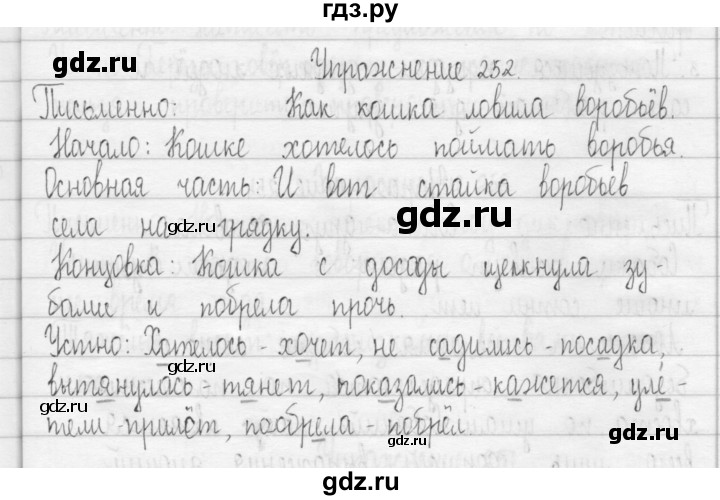 гдз.ру
gdz.ru
Упражнение 252.
gdz.ru
Письменно: Как кошка ловила воробьёв.
Начало: Кошке хотелось поймать воробья.
Основная часть: И вот стайка воробьёв
gdz.ru
села на грядку.
gdz.ru
Концовка: Кошка с досады щелкнула зу
бами и побрела прочь.
Устно: Хотелось - хочет, не садились - посадка,
вытянулась - тянет, показалась - кажется, уле-
gdz.ru
тели - пролёт, побрела - побрёл.
gdz.ru
gdz.ru